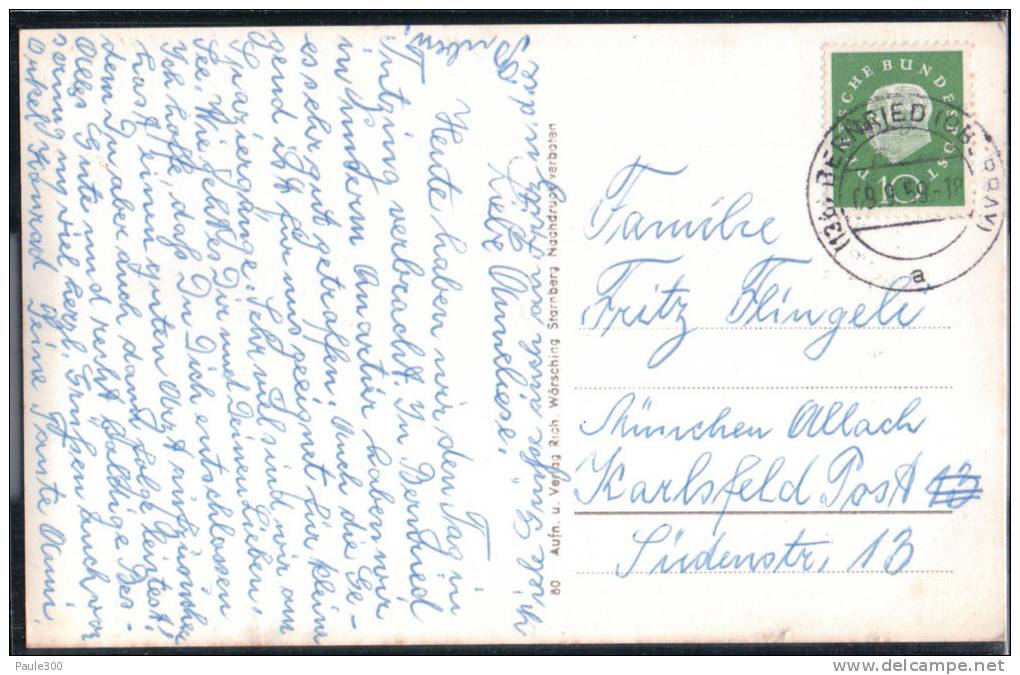 Liebe Anneliese,
Heute haben wir den Tag in
Tutzing verbracht. In Bernried
in unserm Quartier haben wir
es sehr gut getroffen. Auch die Ge-
gend ist für uns geeignet für kleine
Spaziergänge. Sehr viel sind wir am
See. Wie geht es Dir und Deinen Lieben.
Ich hoffe, daß Du Dich entschlossen
hast einen guten Arzt aufzusuchen
dem Du aber auch dann folge leistest!
Alles Gute und recht baldige Bes-
serung viel herzl. Grüßen Euch von
Onkel Konrad Deine Tante Anni
viel Grüße
Buben.
60 Aufn. u. Verlag Rich. Wörsching Starnberg Nachdruck verboten
DEUTSCHE BUNDESPOST
10
(13b) BERNRIED (OBERBAY)
9.59-18
a
Familie
Fritz Flingele
München Allach
Karlsfeld Post
Südenstr. 13
Paule300
http://www.delcampe.net